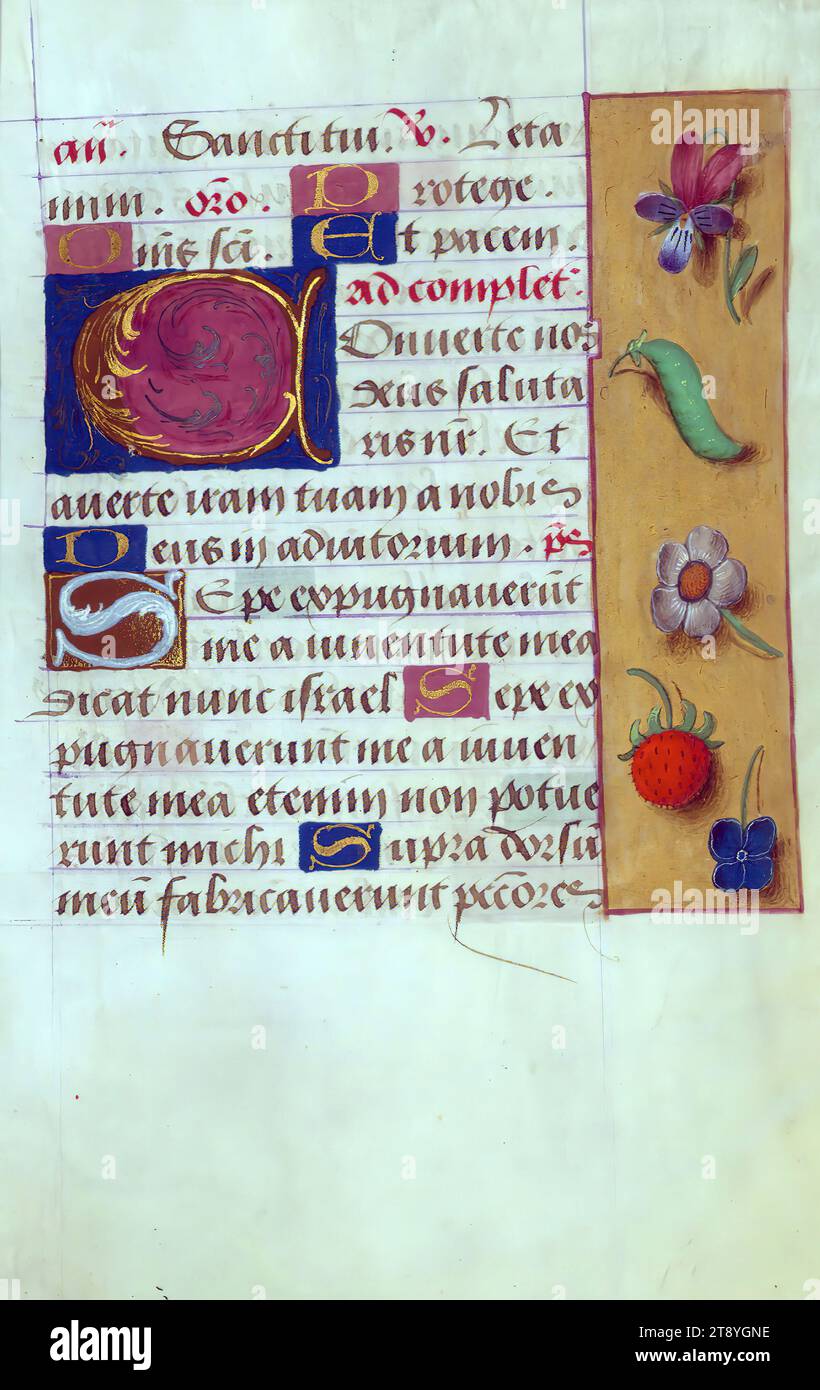 an̄. Sanctitui. V. Leta
mini. oro. Protege.
Om̄s sc̄i. Et pacem.
ad complet:
Conuerte nos
deus saluta
ris nr̄. Et
auerte iram tuam a nobis
Deus in adiutorium. ps̄
Sepe expugnauerūt
me a iuuentute mea
dicat nunc israel Sepe ex
pugnauerunt me a iuuen
tute mea etenim non potue
runt michi Supra dorsū
meū fabricauerunt pec̄cores
alamy
Image ID: 2T8YGNE
www.alamy.com